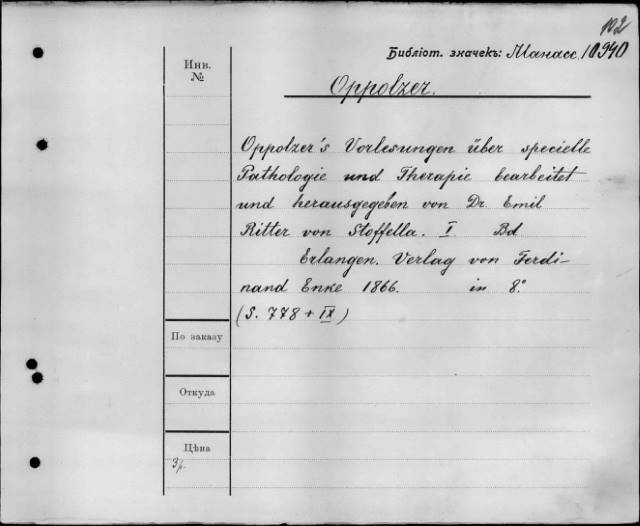 102
Библіот. значекъ: Манасс. 10940
Инв.
№
Oppolzer.
Oppolzer's Vorlesungen über specielle
Pathologie und Therapie bearbeitet
und herausgegeben von Dr. Emil
Ritter von Stoffella. I. Bd
Erlangen. Verlag von Ferdi-
nand Enke 1866. in 8.°
(S. 778 + IX)
По заказу
Откуда
Цѣна
3 р.